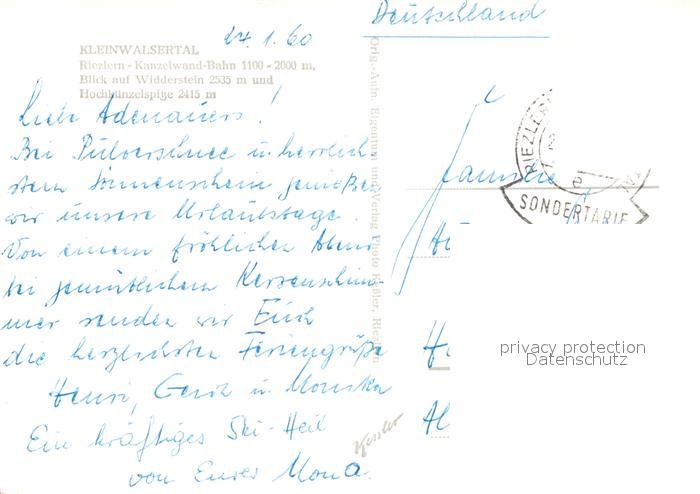 Deutschland
24.1.60
KLEINWALSERTAL
Riezlern - Kanzelwand-Bahn 1100 - 2000 m,
Blick auf Widderstein 2535 m und
Hochkünzelspitze 2415 m
Liebe Adenauers!
Bei Pulverschnee u. herrlich-
stem Sonnenschein genießen
wir unsere Urlaubstage.
Von einem fröhlichen Abend
bei gemütlichem Kerzenschim-
mer senden wir Euch
die herzlichsten Feriengrüße
Henri, Gerd u. Monika
Ein kräftiges Ski-Heil
von Eurer Mona
Kessler
Orig.-Aufn. Eigentum und Verlag Photo Keßler, Riezlern
Familie
RIEZLERN
SONDERTARIF
privacy protection
Datenschutz